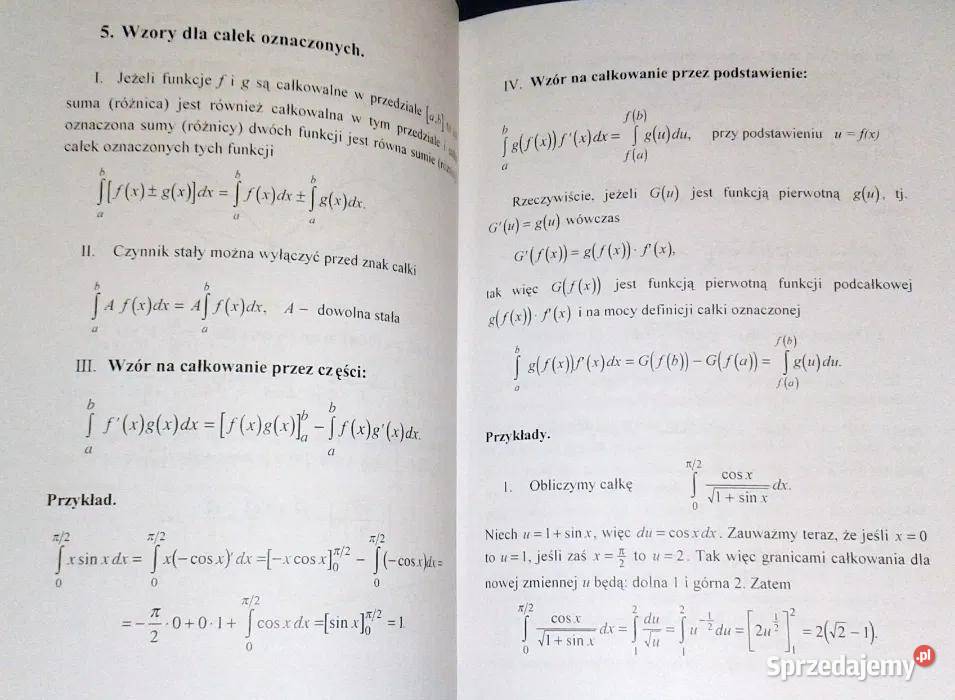 5. Wzory dla całek oznaczonych.
I. Jeżeli funkcje f i g są całkowalne w przedziale [a,b]
suma (różnica) jest również całkowalna w tym przedziale i
oznaczona sumy (różnicy) dwóch funkcji jest równa sumie
całek oznaczonych tych funkcji
∫_a^b [f(x) ± g(x)]dx = ∫_a^b f(x)dx ± ∫_a^b g(x)dx.
II. Czynnik stały można wyłączyć przed znak całki
∫_a^b A f(x)dx = A∫_a^b f(x)dx, A – dowolna stała
III. Wzór na całkowanie przez części:
∫_a^b f'(x)g(x)dx = [f(x)g(x)]_a^b – ∫_a^b f(x)g'(x)dx.
Przykład.
∫_0^{π/2} x sin x dx = ∫_0^{π/2} x(–cos x)' dx =[–x cos x]_0^{π/2} – ∫_0^{π/2} (–cos x)dx =
= –π/2 · 0 + 0 · 1 + ∫_0^{π/2} cos x dx =[sin x]_0^{π/2} = 1.
IV. Wzór na całkowanie przez podstawienie:
∫_a^b g(f(x))f'(x)dx = ∫_{f(a)}^{f(b)} g(u)du, przy podstawieniu u = f(x)
Rzeczywiście, jeżeli G(u) jest funkcją pierwotną g(u), tj.
G'(u) = g(u) wówczas
G'(f(x)) = g(f(x)) · f'(x),
tak więc G(f(x)) jest funkcją pierwotną funkcji podcałkowej
g(f(x)) · f'(x) i na mocy definicji całki oznaczonej
∫_a^b g(f(x))f'(x)dx = G(f(b)) – G(f(a)) = ∫_{f(a)}^{f(b)} g(u)du.
Przykłady.
1. Obliczymy całkę ∫_0^{π/2} cos x/√(1 + sin x) dx.
Niech u = 1 + sin x, więc du = cos x dx. Zauważmy teraz, że jeśli x = 0
to u = 1, jeśli zaś x = π/2 to u = 2. Tak więc granicami całkowania dla
nowej zmiennej u będą: dolna 1 i górna 2. Zatem
∫_0^{π/2} cos x/√(1 + sin x) dx = ∫_1^2 du/√u = ∫_1^2 u^{-1/2} du = [2u^{1/2}]_1^2 = 2(√2 – 1).
Sprzedajemy.pl